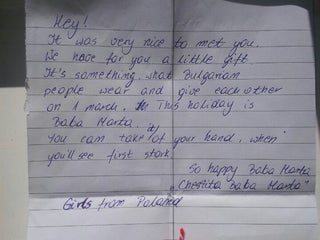 Hey!
It was very nice to met you.
We have for you a little gift.
It's something what Bulgarian
people wear and give each other
on 1 march. This holiday is
Baba Marta.
You can take it of your hand, when
you'll see first stork
So happy Baba Marta
„Chestita Baba Marta"
Girls from Poland